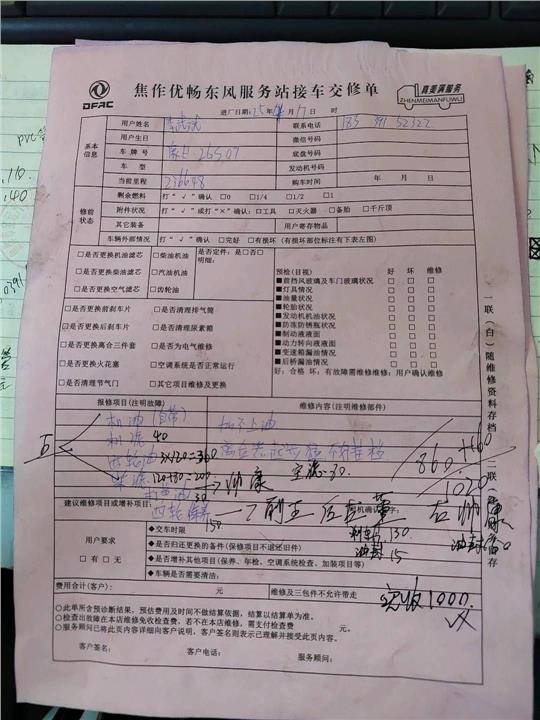 DFAC
焦作优畅东风服务站接车交修单
真美满服务
ZHENMEIMANFUWU
进厂日期:25年 月17日 时
基本信息
用户姓名
联系电话
用户生日
微信号码
车牌号
底盘号码
车型
发动机号码
当前里程 236648
购车时间 年 月 日
修前状态
剩余燃料 打“√”确认 □0 □1/4 □1/2 □1
附件状况 打“√”或打“×”确认:□工具 □灭火器 □备胎 □千斤顶
其它装备
用户寄存物品
车辆外部情况 打“√”确认 □完好 □有损坏(有损坏部位标注有下表左图)
□是否更换机油滤芯 □柴油机油 是否定件:是□否□
□是否更换柴油滤芯 □汽油机油 明细:
□是否更换空气滤芯 □齿轮油
预检(目视) 好 坏 维修
■前挡风玻璃及车门玻璃状况 □ □ □
■灯具情况 □ □ □
■油量状况 □ □ □
■轮胎状况 □ □ □
■发动机机油状况 □ □ □
■防冻防锈瓶状况 □ □ □
■制动液液面 □ □ □
■动力转向液液面 □ □ □
■变速箱漏油情况 □ □ □
■后桥漏油情况 □ □ □
好:合格 坏:有故障需维修维修:用户确认维修
□是否更换前刹车片 □是否清理排气筒
□是否更换后刹车片 □是否清理尿素箱
□是否更换离合三件套 □是否为电气维修
□是否更换火花塞 □空调系统是否正常运行
□是否清理节气门 □其它项目维修及更换
报修项目(注明故障) 维修内容(注明维修部件)
机油(自带) 加不上油
机滤 40
齿轮油 3×120=360
柴滤 120+80=200 帅康 空滤=30.
860+160
1020
建议维修项目或增补项目:
150
刹车 130
油封 15
用户要求
□有 □无
◆交车时限
◆是否归还更换的备件(保修项目不退还旧件)
◆是否增补其他项目(保养、年检、空调系统检查、加装项目等)
◆车辆是否需要清洁:
费用合计(客户): 元 维修及三包件不允许带走
实收1000.
○此单所含预诊断结果,预估费用及时间不做结算依据,结算以结算单为准。
○检查出故障在本店维修免收检查费,若不在本店维修,需支付检查费 元。
○服务顾问已将此页内容详细向客户说明,客户签名则表示已理解并接受此页内容。
客户签名: 客户电话: 服务顾问:
一联(白)随维修资料存档